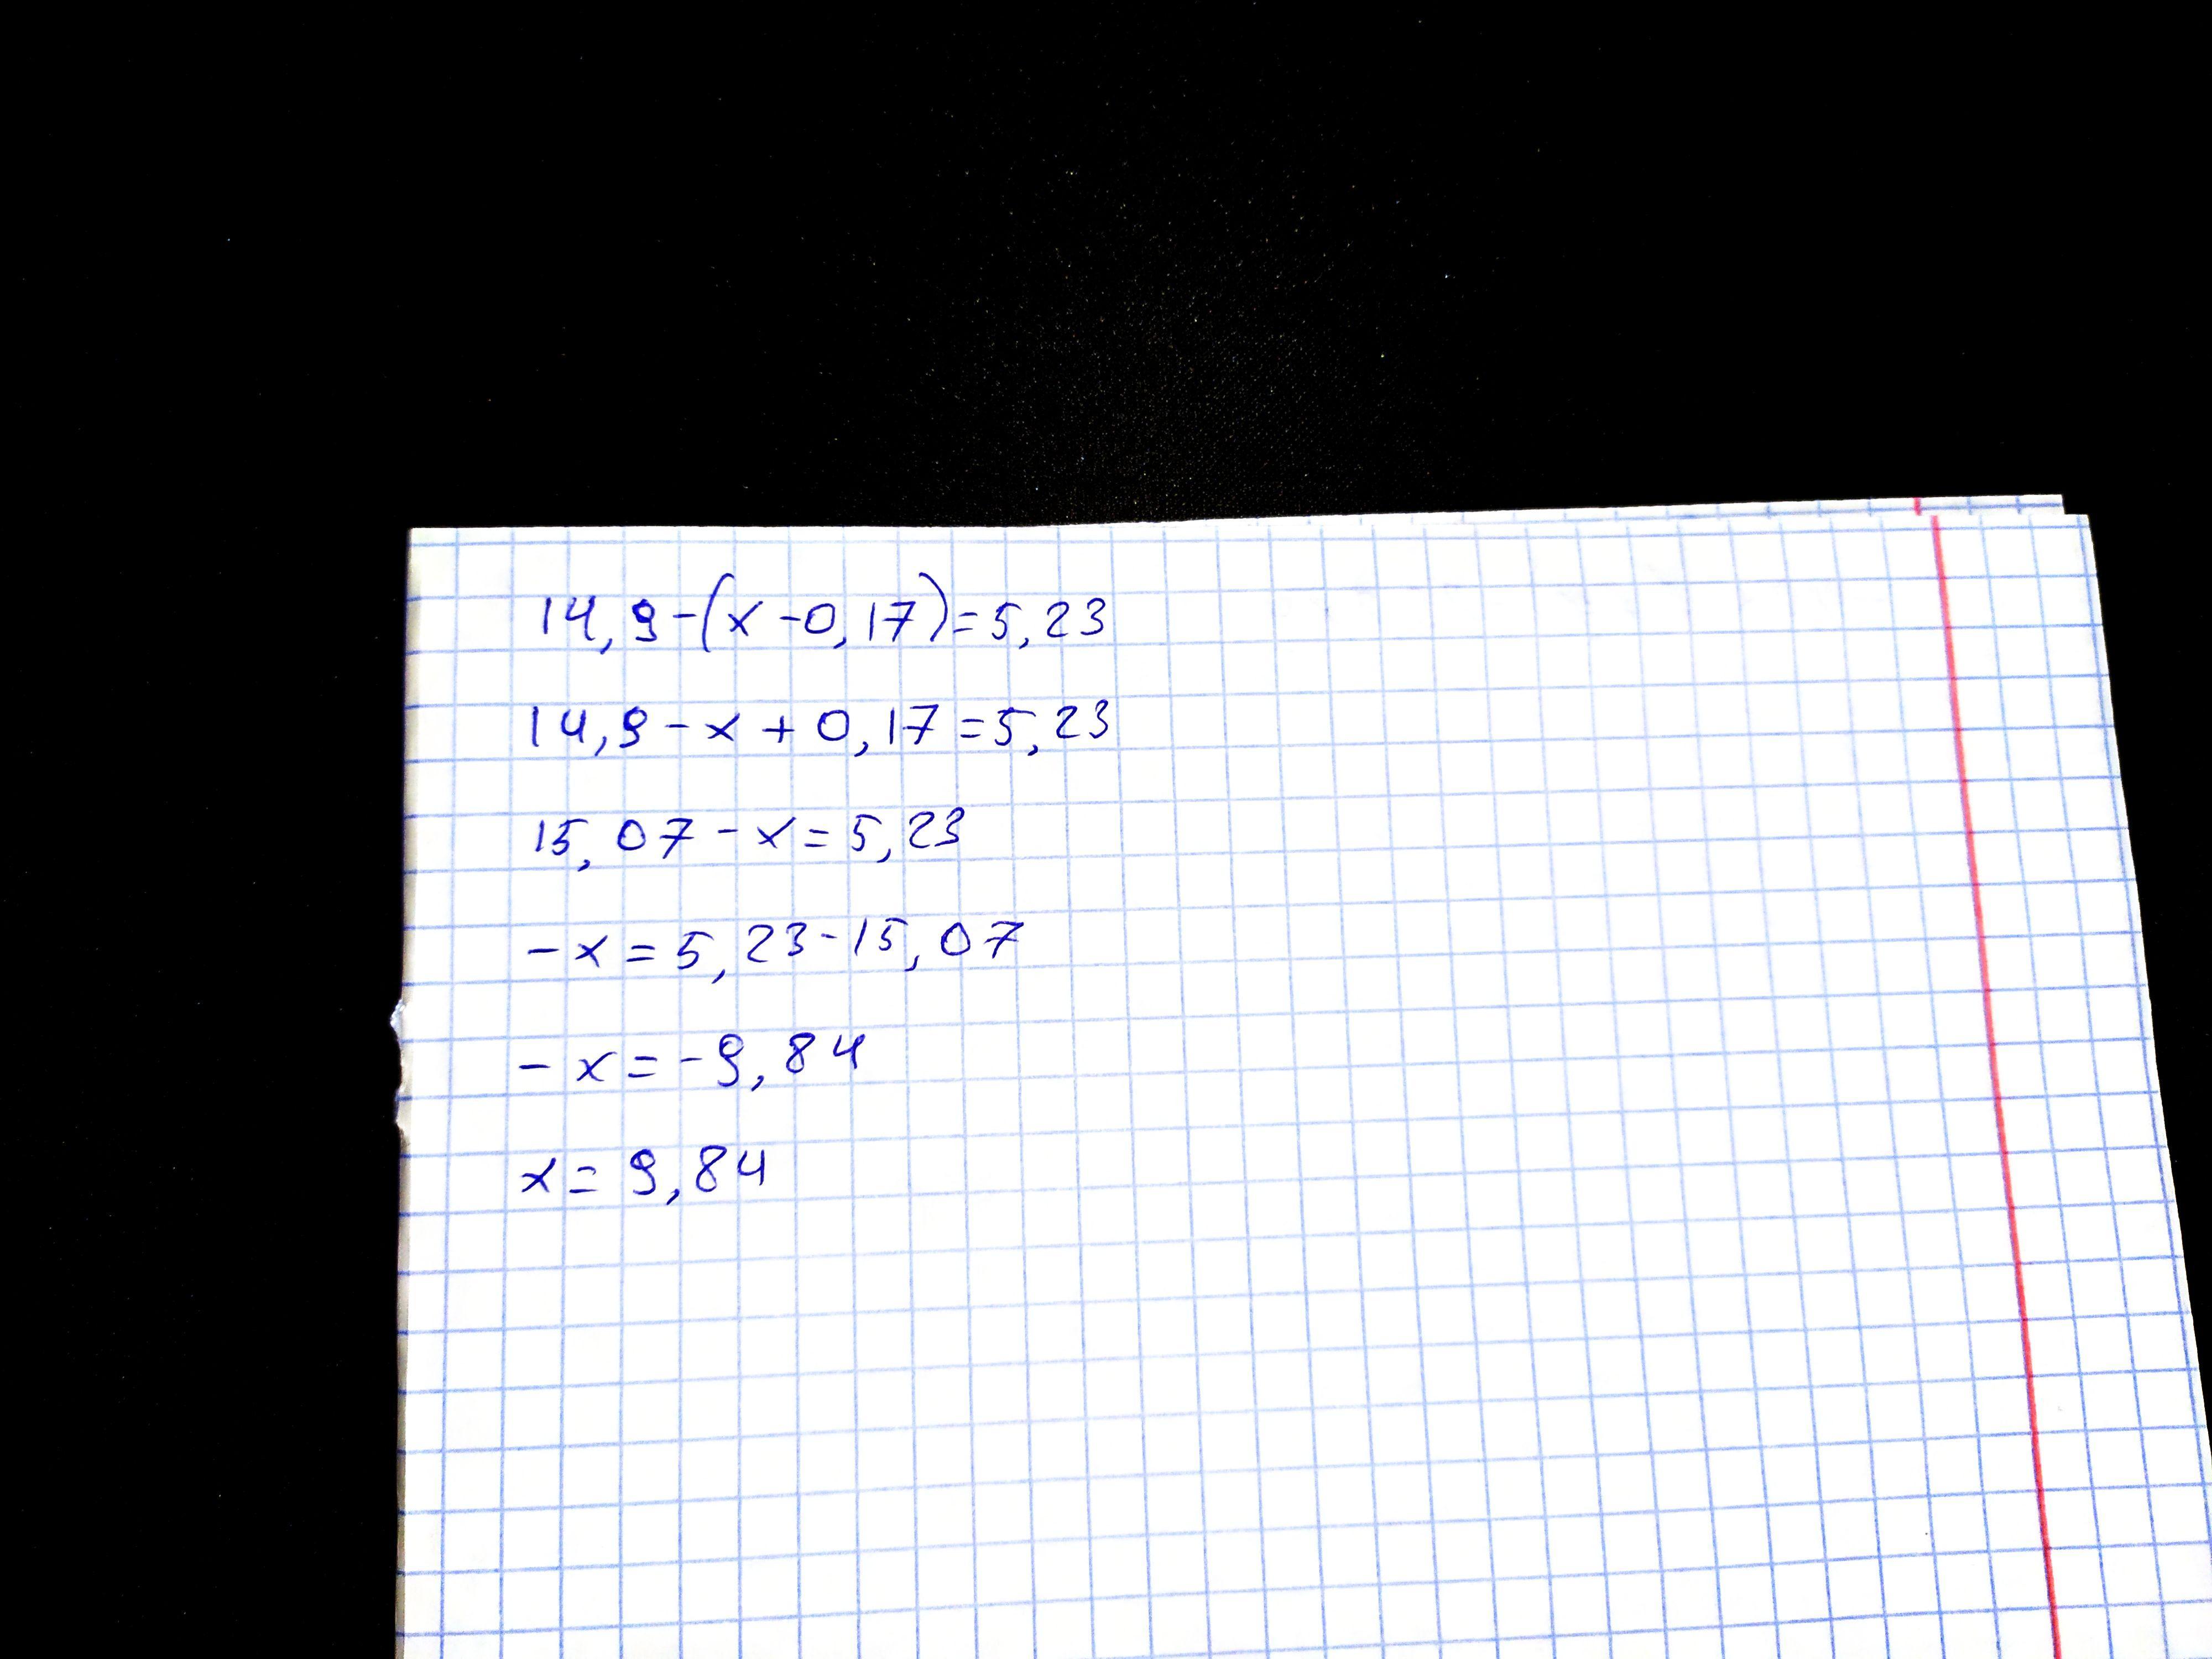 14,9-(x-0,17)=5,23
14,9-x+0,17=5,23
15,07-x=5,23
-x=5,23-15,07
-x=-9,84
x=9,84